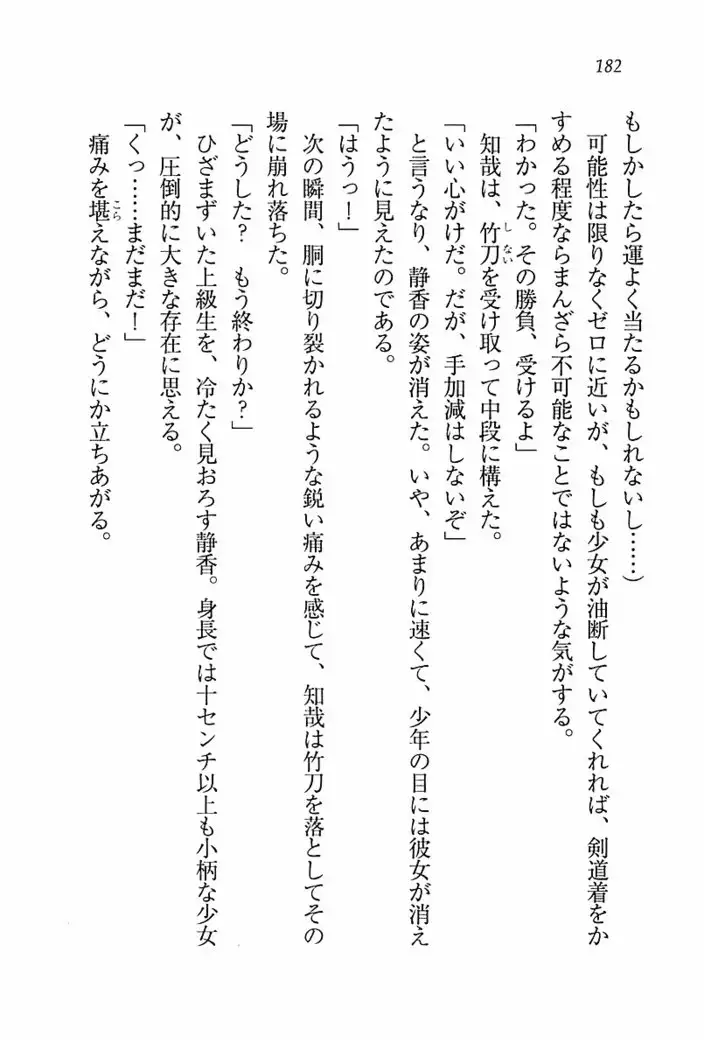 182
もしかしたら運よく当たるかもしれないし……)
可能性は限りなくゼロに近いが、もしも少女が油断していてくれれば、剣道着をか
すめる程度ならまんざら不可能なことではないような気がする。
「わかった。その勝負、受けるよ」
知哉は、竹刀を受け取って中段に構えた。
「いい心がけだ。だが、手加減はしないぞ」
と言うなり、静香の姿が消えた。いや、あまりに速くて、少年の目には彼女が消え
たように見えたのである。
「はうっ！」
次の瞬間、胴に切り裂かれるような鋭い痛みを感じて、知哉は竹刀を落としてその
場に崩れ落ちた。
「どうした？　もう終わりか？」
ひざまずいた上級生を、冷たく見おろす静香。身長では十センチ以上も小柄な少女
が、圧倒的に大きな存在に思える。
「くっ……まだまだ！」
痛みを堪えながら、どうにか立ちあがる。